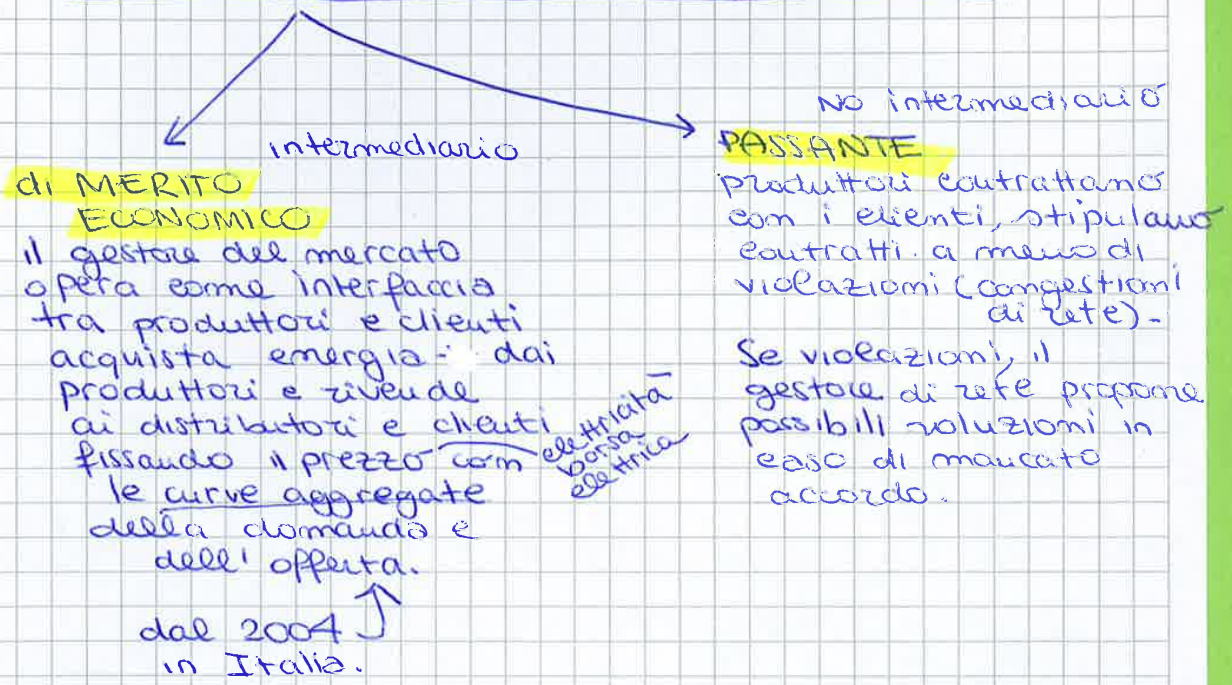 intermediario
di MERITO
ECONOMICO
il gestore del mercato
opera come interfaccia
tra produttori e clienti
acquista energia dai
produttori e rivende
ai distributori e clienti
fissando il prezzo con
elettricità
borsa
elettrica
le curve aggregate
della domanda e
dell' offerta.
dal 2004
in Italia.
NO intermediario
PASSANTE
produttori contrattano
con i clienti, stipulano
contratti. a meno di
violazioni (congestioni
di rete).
Se violazioni, il
gestore di rete propone
possibili soluzioni in
caso di mancato
accordo.